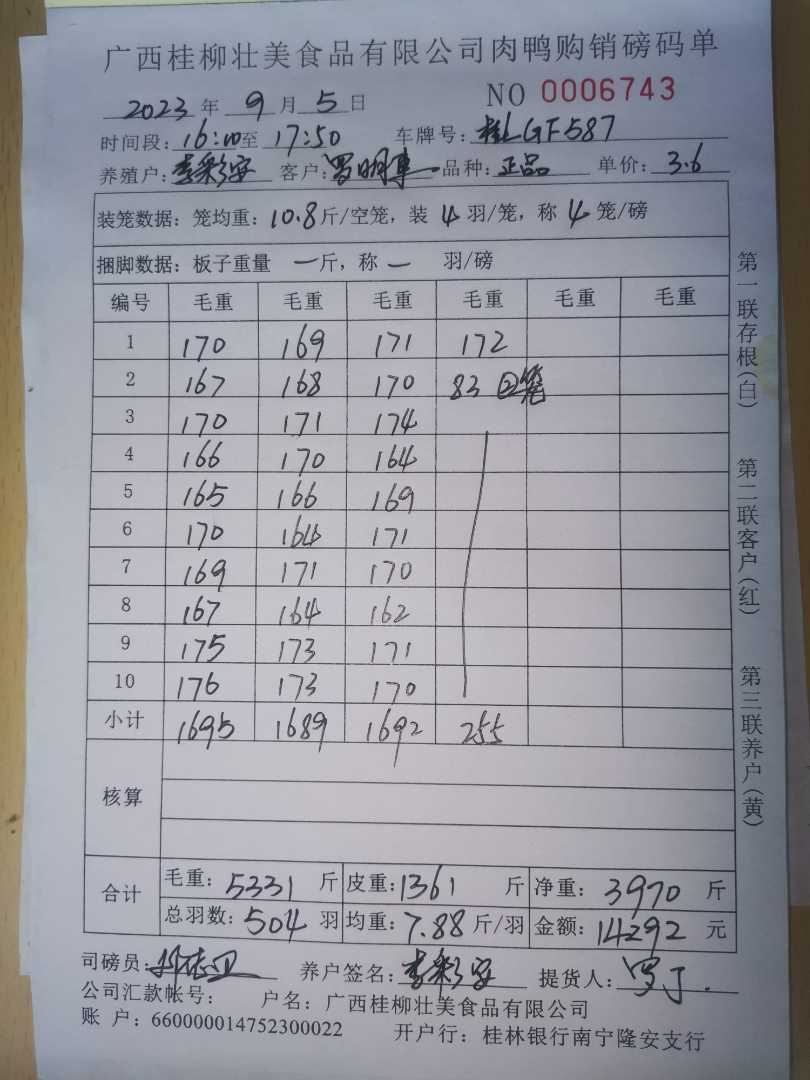 广西桂柳壮美食品有限公司肉鸭购销磅码单
2023年 9月 5日 NO 0006743
时间段:16:10至 17:50 车牌号:桂LGF587
养殖户:李彩安 客户:罗明 品种:正品 单价:3.6
装笼数据:笼均重:10.8斤/空笼,装 4 羽/笼,称 4 笼/磅
捆脚数据:板子重量 一斤,称一 羽/磅
编号 毛重 毛重 毛重 毛重 毛重 毛重
1 170 169 171 172
2 167 168 170 83 2笼
3 170 171 174
4 166 170 164
5 165 166 169
6 170 164 171
7 169 171 170
8 167 164 162
9 175 173 171
10 176 173 170
小计 1695 1689 1692 255
核算
合计 毛重:5331 斤 皮重:1361 斤 净重:3970 斤
总羽数:504 羽 均重:7.88斤/羽 金额:14292 元
司磅员: 养户签名:李彩安 提货人:罗丁.
公司汇款帐号: 户名:广西桂柳壮美食品有限公司
账 户:660000014752300022 开户行:桂林银行南宁隆安支行
第一联存根(白) 第二联客户(红) 第三联养户(黄)